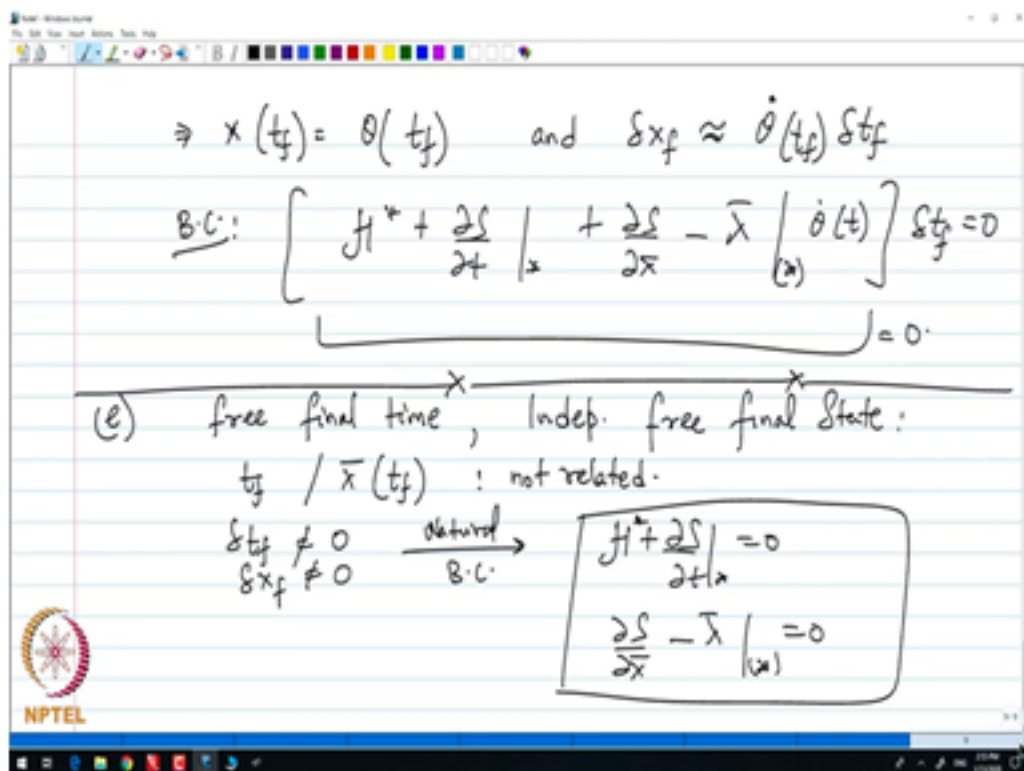 ⇒ x(t_f) = θ(t_f) and δx_f ≈ θ̇(t_f) δt_f
B.C.: [ H* + ∂S/∂t |_* + ∂S/∂x̄ − λ̄ |_(*) θ̇(t) ] δt_f = 0
= 0.
(e) free final time, Indep. free final State:
t_f / x̄(t_f) : not related.
δt_f ≠ 0 Natural H* + ∂S/∂t |_* = 0
δx_f ≠ 0 B.C.
∂S/∂x̄ − λ̄ |_(*) = 0
NPTEL